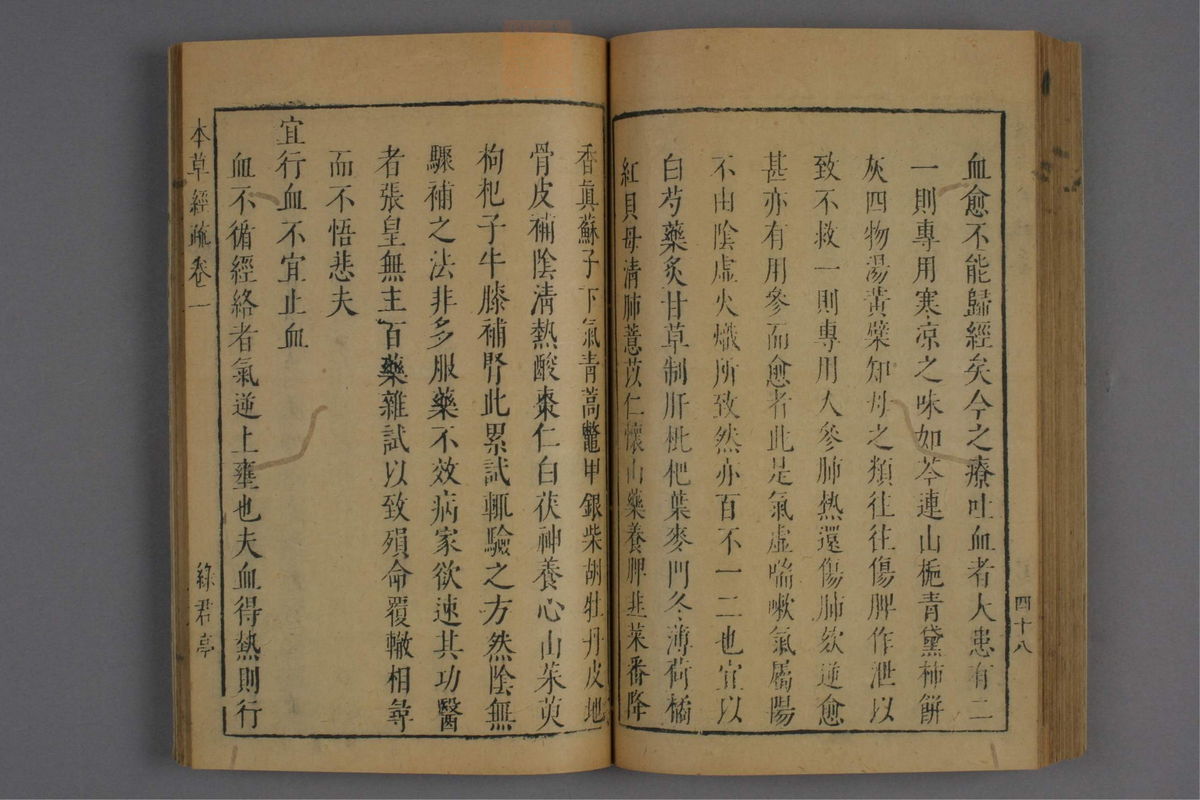 血愈不能歸經矣今之療吐血者大患有二
一則專用寒涼之味如芩連山梔青黛柿餅
灰四物湯黃蘗知母之類往往傷脾作泄以
致不救一則專用人參肺熱還傷肺欬逆愈
甚亦有用參而愈者此是氣虛喘嗽氣屬陽
不由陰虛火熾所致然亦百不一二也宜以
白芍藥炙甘草制肝枇杷葉麥門冬薄荷橘
紅貝母清肺薏苡仁懷山藥養脾韭菜番降
四十八
香真蘇子下氣青蒿鼈甲銀柴胡牡丹皮地
骨皮補陰清熱酸棗仁白茯神養心山茱萸
枸杞子牛膝補腎此累試輒驗之方然陰無
驟補之法非多服藥不效病家欲速其功醫
者張皇無主百藥雜試以致殞命覆轍相尋
而不悟悲夫
宜行血不宜止血
血不循經絡者氣逆上壅也夫血得熱則行
本草經疏卷一
綠君亭